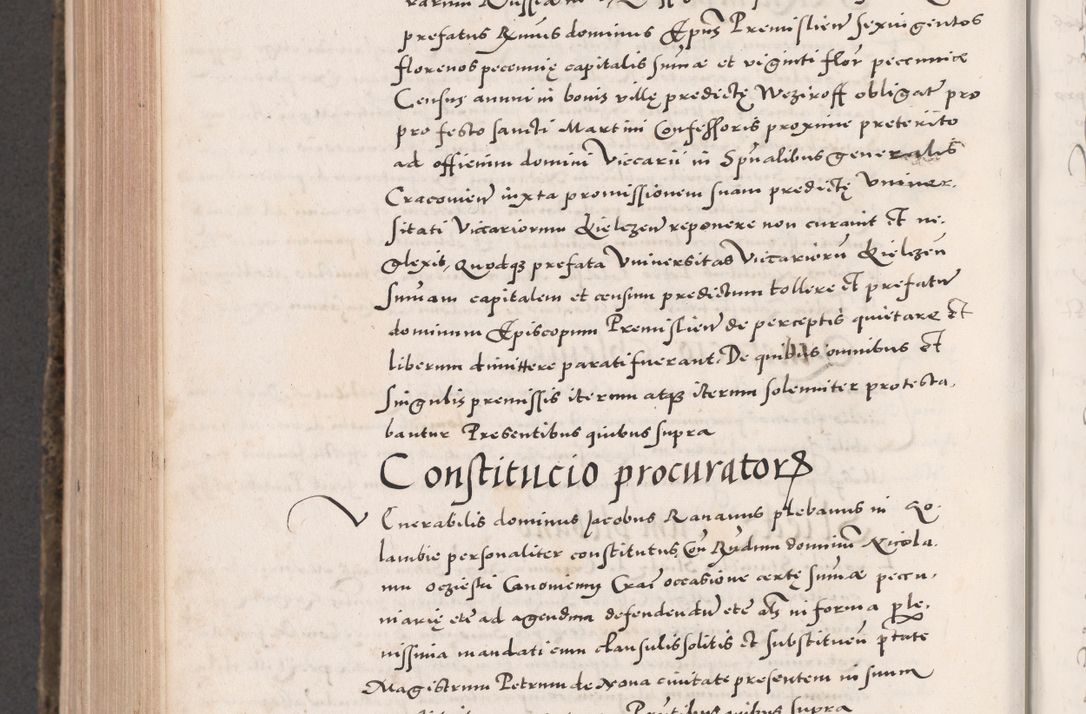 prefatus Rmus dominus Epūs Premislien̄ sexingentos
florenos pecunię capitalis sumæ et viginti flor̄ pecuniæ
Census annui in bonis villę predictę Weziroff obligat̄ pro
pro festo sancti Martini Confessoris proxime preterito
ad officium domini Viccarii in Sp̄ualibus generalis
Cracovien̄ iuxta promissionem suam predictę Univer-
sitati Viccariorum Kielczen̄ reponere non curavit et ne-
glexit, Quodq3 prefata Universitas Viccariorū Kielczen̄
sumam capitalem et censum predictum tollere et prefatū
dominum Episcopum Premislien̄ de perceptis quietare et
liberum dimittere parati fuerant. De quibus omnibus et
singulis premissis iterum atq3 iterum solenniter protesta-
bantur Presentibus quibus supra
Constitucio procuratorꝝ
Venerabilis dominus Jacobus Rananus plebanus in Ko-
lambie personaliter constitutus, Con̄ Rn̄dum dominū Nicola-
um Ocziesski Canonicum Crac̄ occasione certę sumæ peccu-
niarię etc̄ ad agendum defendendū etc̄ als̄ in forma ple-
nissima mandati cum clausulis solitis et substituen̄ p̄tate
Magistrum Petrum de Nova civitate presentem in suum
supra